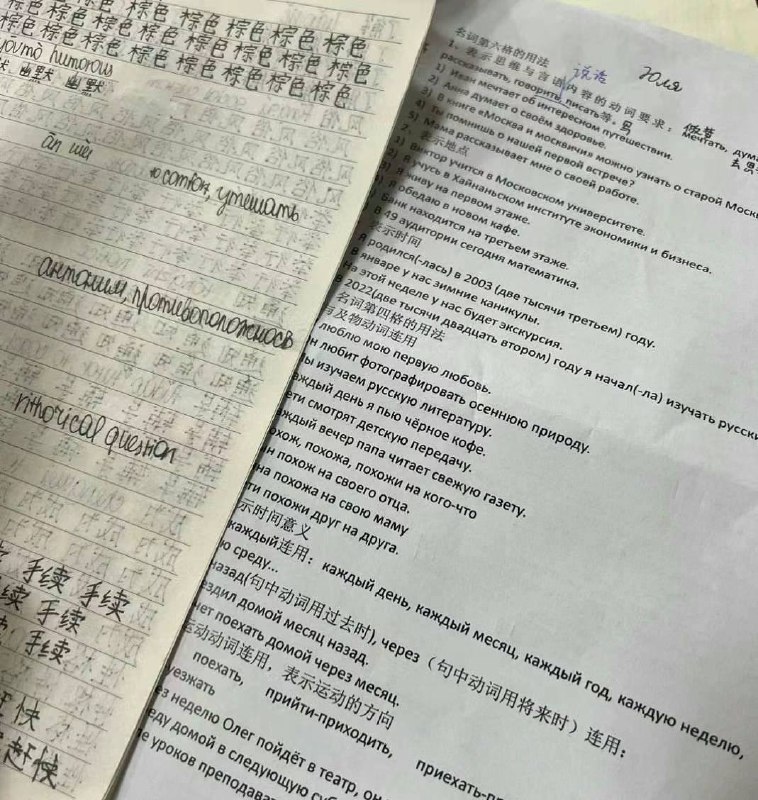 棕色 棕色 棕色 棕色 棕色 棕色 棕色
棕色 棕色 棕色 棕色 棕色 棕色 棕色
棕色 棕色 棕色 棕色 棕色 棕色
humorous
幽默 幽默
ān wèi
утешать
антоним, противоположнось
question
手续 手续
手续
手续
赶快
名词第六格的用法
说话
Юля
1、表示思维与言语内容的动词要求：мечтать, дум
рассказывать, говорить, писать等。
写
1) Иван мечтает об интересном путешествии.
2) Анна думает о своём здоровье.
3) В книге «Москва и москвичи» можно узнать о старой Москв
4) Ты помнишь о нашей первой встрече?
5) Мама рассказывает мне о своей работе.
2、表示地点
Виктор учится в Московском университете.
Я учусь в Хайнаньском институте экономики и бизнеса.
Я живу на первом этаже.
Я обедаю в новом кафе.
Банк находится на третьем этаже.
В 49 аудитории сегодня математика.
表示时间
Я родился(-лась) в 2003 (две тысячи третьем) году.
В январе у нас зимние каникулы.
На этой неделе у нас будет экскурсия.
2022(две тысячи двадцать втором) году я начал(-ла) изучать русски
名词第四格的用法
与及物动词连用
люблю мою первую любовь.
он любит фотографировать осеннюю природу.
ы изучаем русскую литературу.
аждый день я пью чёрное кофе.
ети смотрят детскую передачу.
аждый вечер папа читает свежую газету.
охож, похожа, похожи на кого-что
н похож на своего отца.
на похожа на свою маму
ти похожи друг на друга.
示时间意义
каждый连用：каждый день, каждый месяц, каждый год, каждую неделю,
ю среду...
назад(句中动词用过去时), через（句中动词用将来时）连用：
ездил домой месяц назад.
чет поехать домой через месяц.
运动动词连用，表示运动的方向
поехать, прийти-приходить, приехать-пр
уезжать
ез неделю Олег пойдёт в театр, он
еду домой в следующую суб
ле уроков преподава